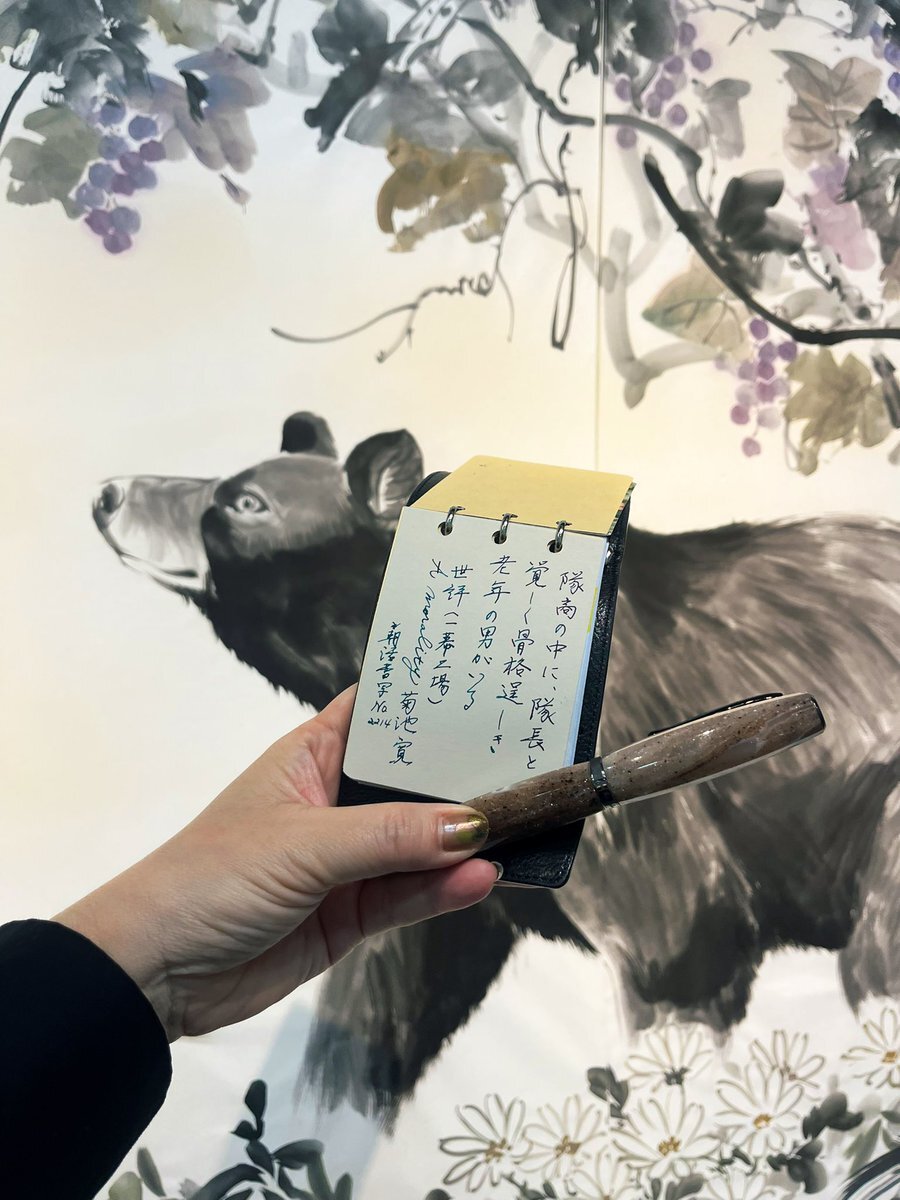 隊商の中に、隊長と
覚しく骨格逞しき
老年の男がいる
世評(一幕二場)
A morality 菊池寛
#朝活書写 No.2214